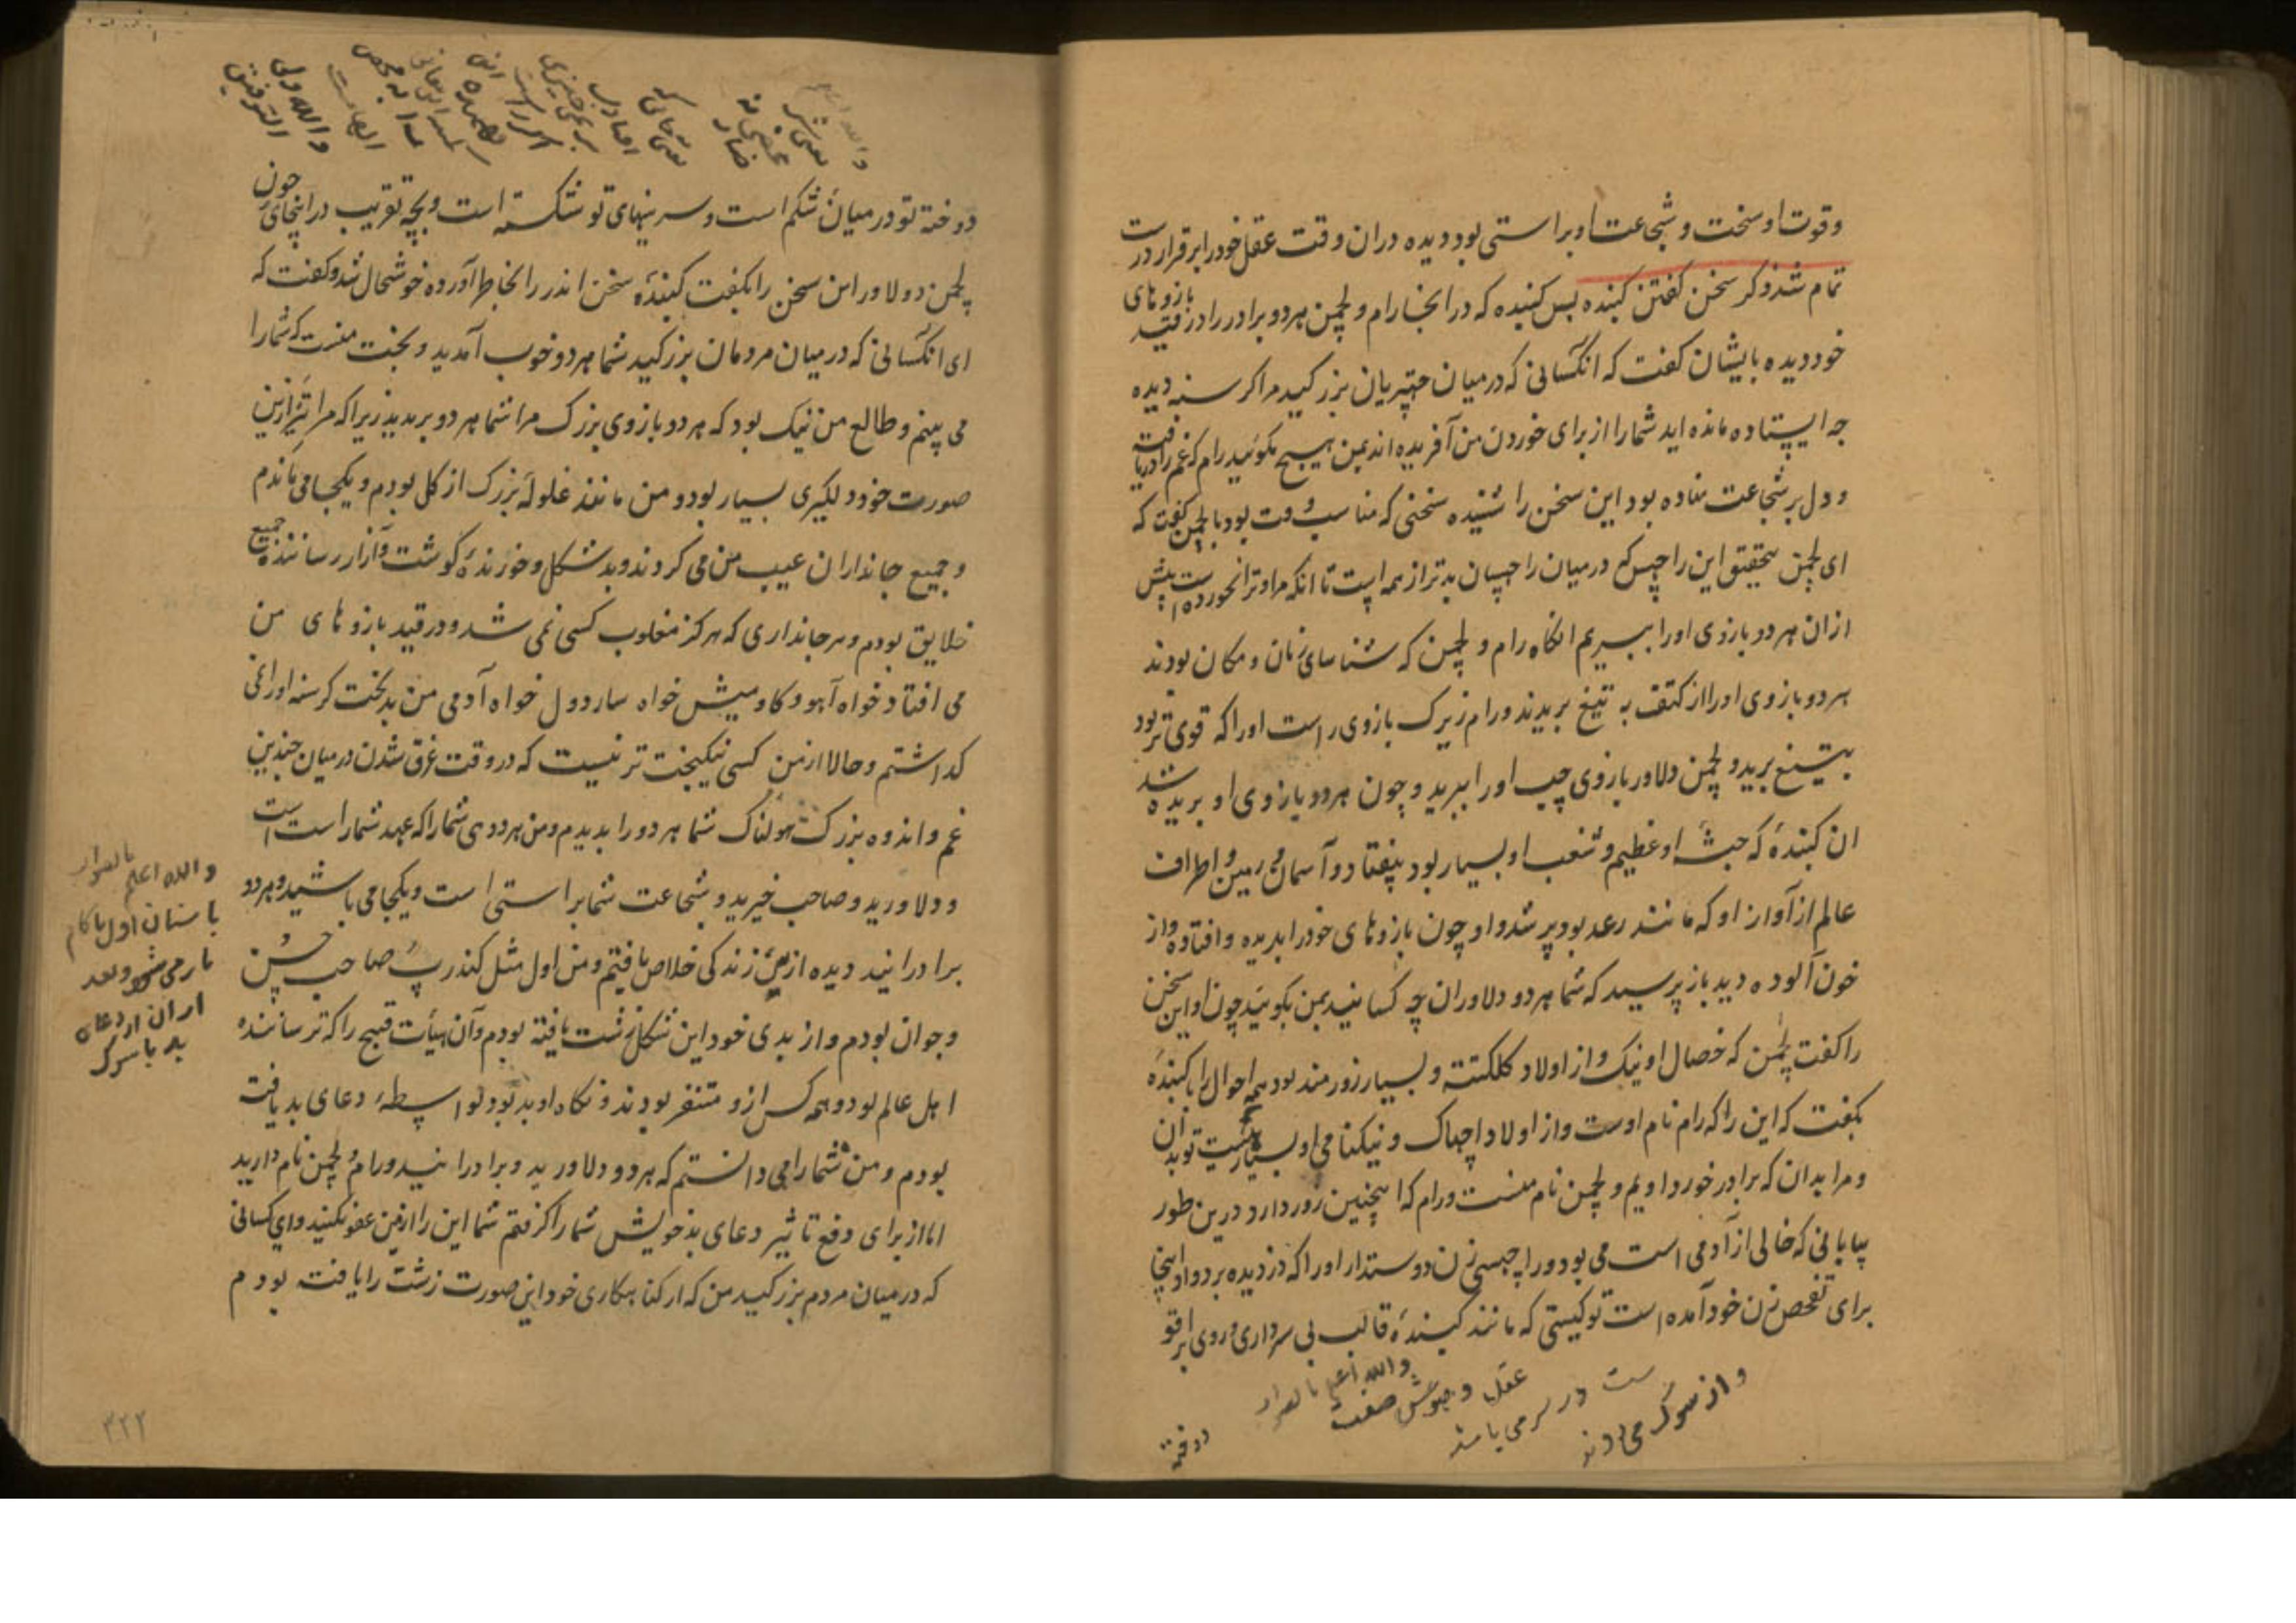 وقوت او سخت و شجاعت او براستی بود دیده دران وقت عقل خود را برقرار در
تمام شد ذکر سخن گفتن کبنده پس کبنده که در انجا رام و لچمن هر دو برادر را در قید بازوهای
خود دیده بایشان کفت که انکسانی که در میان چتریان بزرکید مرا کرسنه دیده
چه ایستاده مانده اید شما را از برای خوردن من آفریده اند بمن هیچ مکوئید رام که غم را دریافت
و دل بر شجاعت نهاده بود این سخن را شنیده سخنی که مناسب وقت بود با لچمن کفت که
ای لچمن بتحقیق این راچس که درمیان راچسان بدتر از همه است تا انکه مرا و ترا نخورده است پیش
ازان هر دو بازوی او را ببریم انکاه رام و لچمن که شناسای زمان و مکان بودند
هر دو بازوی او را از کتف به تیغ بریدند و رام زیرک بازوی راست او را که قوی تر بود
بتیغ برید و لچمن دلاور بازوی چپ او را ببرید و چون هر دو بازوی او بریده شد
ان کبنده که جثه او عظیم و شغب او بسیار بود بیفتاد و آسمان و زمین و اطراف
عالم از آواز او که مانند رعد بود پر شد و او چون بازوهای خود را بدیده و افتاده و از
خون آلوده دید باز پرسید که شما هر دو دلاوران چه کسانید بمن بکوئید چون او این سخن
را کفت لچمن که خصال او نیک و از اولاد کلکسته و بسیار زورمند بود همه احوال را با کبنده
بکفت که این را که رام نام اوست و از اولاد اچهاک و نیکنامی او بسیار است تو بدان
و مرا بدان که برادر خورد اویم و لچمن نام منست و رام که اینچنین زور دارد درین طور
بیابانی که خالی از آدمی است می بود و راچسی زن دوستدار او را که دزدیده برد و او اینجا
برای تفحص زن خود آمده است تو کیستی که مانند کبنده قالب بی سر داری و روی
واز سوک می داند
ست در سر می باشد
عقل و هوش صفت
والله اعلم بالصواب
دوخته
دوخته تو در میان شکم است و سرینهای تو شکسته است و بچه تقریب در اینجای چون
لچمن دولاور این سخن را بکفت کبنده سخن اندر را بخاطر آورده خوشحال شد و کفت که
ای انکسانی که در میان مردمان بزرکید شما هر دو خوب آمدید و بخت منست که شما را
می بینم و طالع من نیک بود که هر دو بازوی بزرک مرا شما هر دو بریدید زیرا که مرا نیز ازین
صورت خود دلکیری بسیار بود و من مانند غلوله بزرک از کل بودم و یکجا می ماندم
و جمیع جانداران عیب من می کردند و بد شکل و خورنده کوشت و آزار رساننده جمیع
خلایق بودم و هر جانداری که هرکز مغلوب کسی نمی شد و در قید بازوهای من
می افتاد خواه آهو و کاومیش خواه ساردول خواه آدمی من بدبخت کرسنه او را نمی
کداشتم و حالا از من کسی نیکبخت تر نیست که در وقت غرق شدن در میان چندین
غم و اندوه بزرک هولناک شما هر دو را بدیدم و من هر دوی شما را که عهد شما راست است
و دلاورید و صاحب خیرید و شجاعت شما براستی است و یکجا می باشید و هر دو
برادرانید دیده ازین زندکی خلاص یافتم و من اول مثل کندرپ صاحب حسن
و جوان بودم و از بدی خود این شکل زشت یافته بودم و آن هیأت قبیح را که ترساننده
اهل عالم بود و همه کس ازو متنفر بودند و نکاه او بد بود بواسطه دعای بد یافته
بودم و من شما را می دانستم که هر دو دلاورید و برادرانید و رام و لچمن نام دارید
اما از برای دفع تاثیر دعای بد خویش شما را کرفتم شما این را از من عفو بکنید و ای کسانی
که در میان مردم بزرکید من که از کناهکاری خود این صورت زشت را یافته بودم
والله اعلم بالصواب
والله ولی
التوفیق
۳۲۲